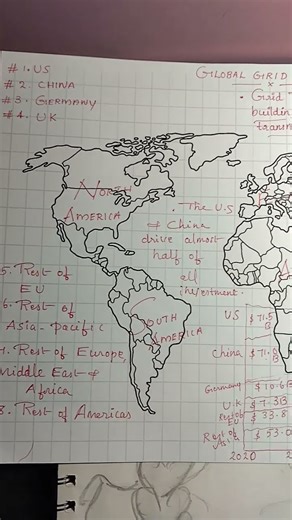 #1. US
#2. CHINA
#3. GERMANY
#4. UK
GLOBAL GRID
• Grid
buildin
NORTH
AMERICA
• The U.S
& China
drive almost
half of
all
investment.
5. Rest of
EU
6. Rest of
Asia-pacific
7. Rest of Europe,
Middle East &
Africa
8. Rest of Americas
SOUTH
AMERICA
US
China
Germany
$10.6B
UK
$7.3B
Rest of
EU
$33.8
Rest of
Asia
$53.0
2020